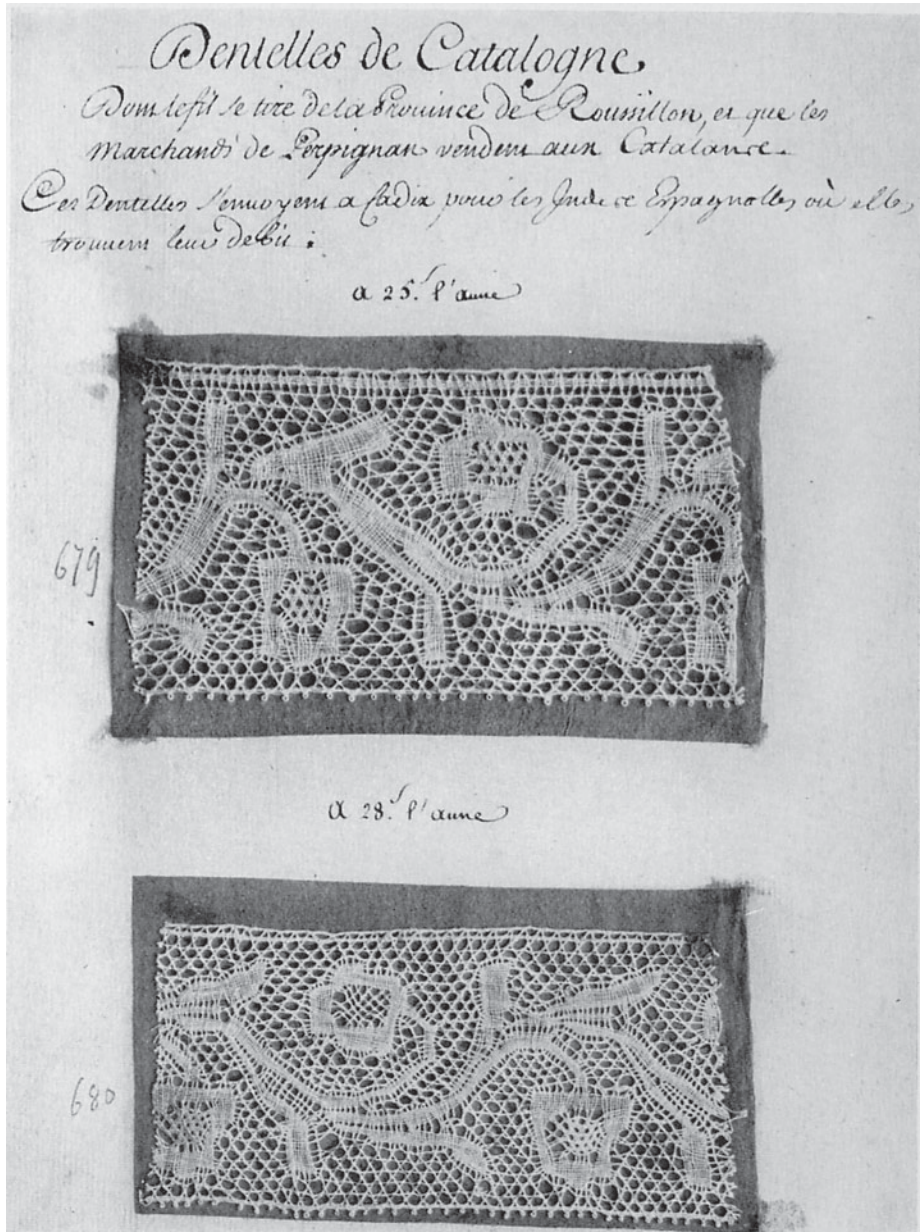 Dentelles de Catalogne
Dont le fil se tire de la Province de Roussillon, et que les
Marchands de Perpignan vendent aux Catalans.
Ces Dentelles s'envoyent a Cadix pour les Indes Espagnolles où elles
trouvent leur debit :
a 25.s l'aune
679
a 28.s l'aune
680